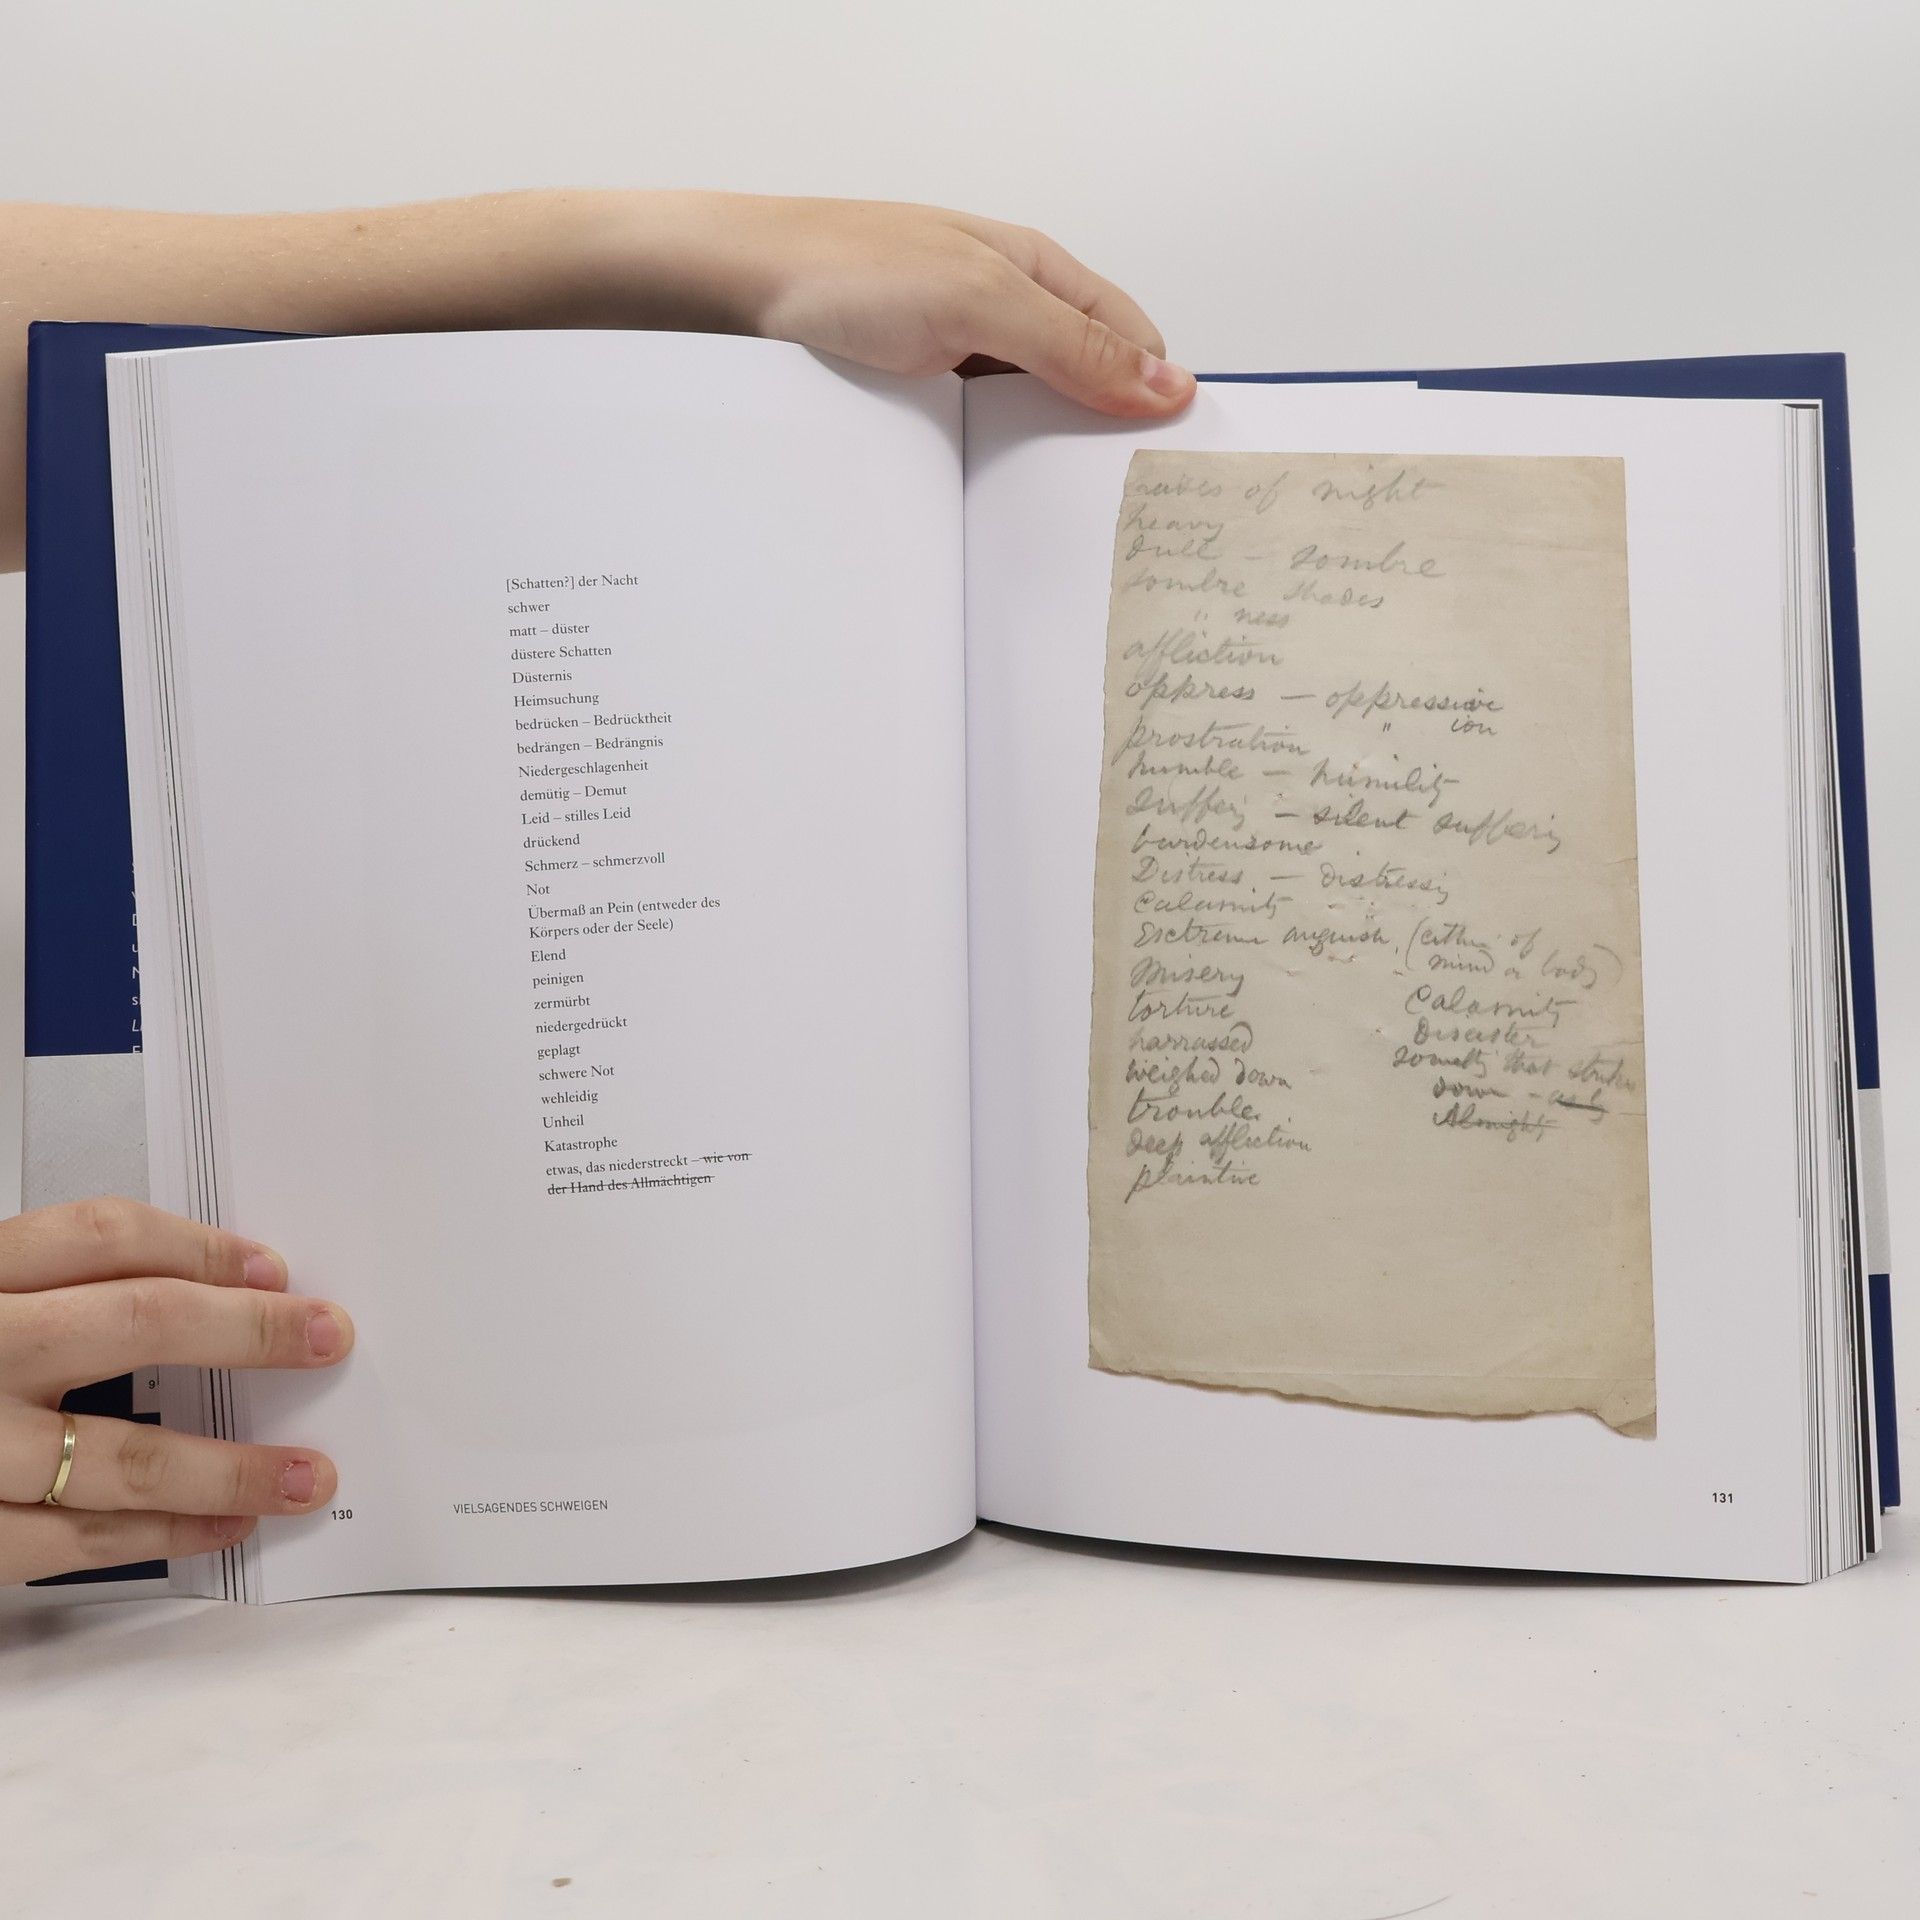 [Schatten?] der Nacht
schwer
matt – düster
düstere Schatten
Düsternis
Heimsuchung
bedrücken – Bedrücktheit
bedrängen – Bedrängnis
Niedergeschlagenheit
demütig – Demut
Leid – stilles Leid
drückend
Schmerz – schmerzvoll
Not
Übermaß an Pein (entweder des
Körpers oder der Seele)
Elend
peinigen
zermürbt
niedergedrückt
geplagt
schwere Not
wehleidig
Unheil
Katastrophe
etwas, das niederstreckt – wie von
der Hand des Allmächtigen
130
VIELSAGENDES SCHWEIGEN
of night
heavy
dull – sombre
sombre shades
" ness
affliction
oppress – oppressive
" ion
prostration
humble – humility
– silent
burdensome
Distress –
Calamity
Extreme anguish (either of
mind or body)
Misery
torture
harrassed
weighed down
trouble
deep affliction
plaintive
Calamity
Disaster
that
down –
131
9